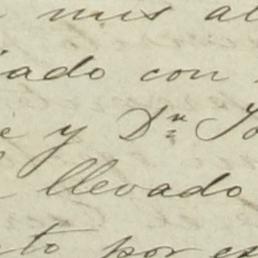 mis al
iado con
e y Dn Jo
llevado
to por es